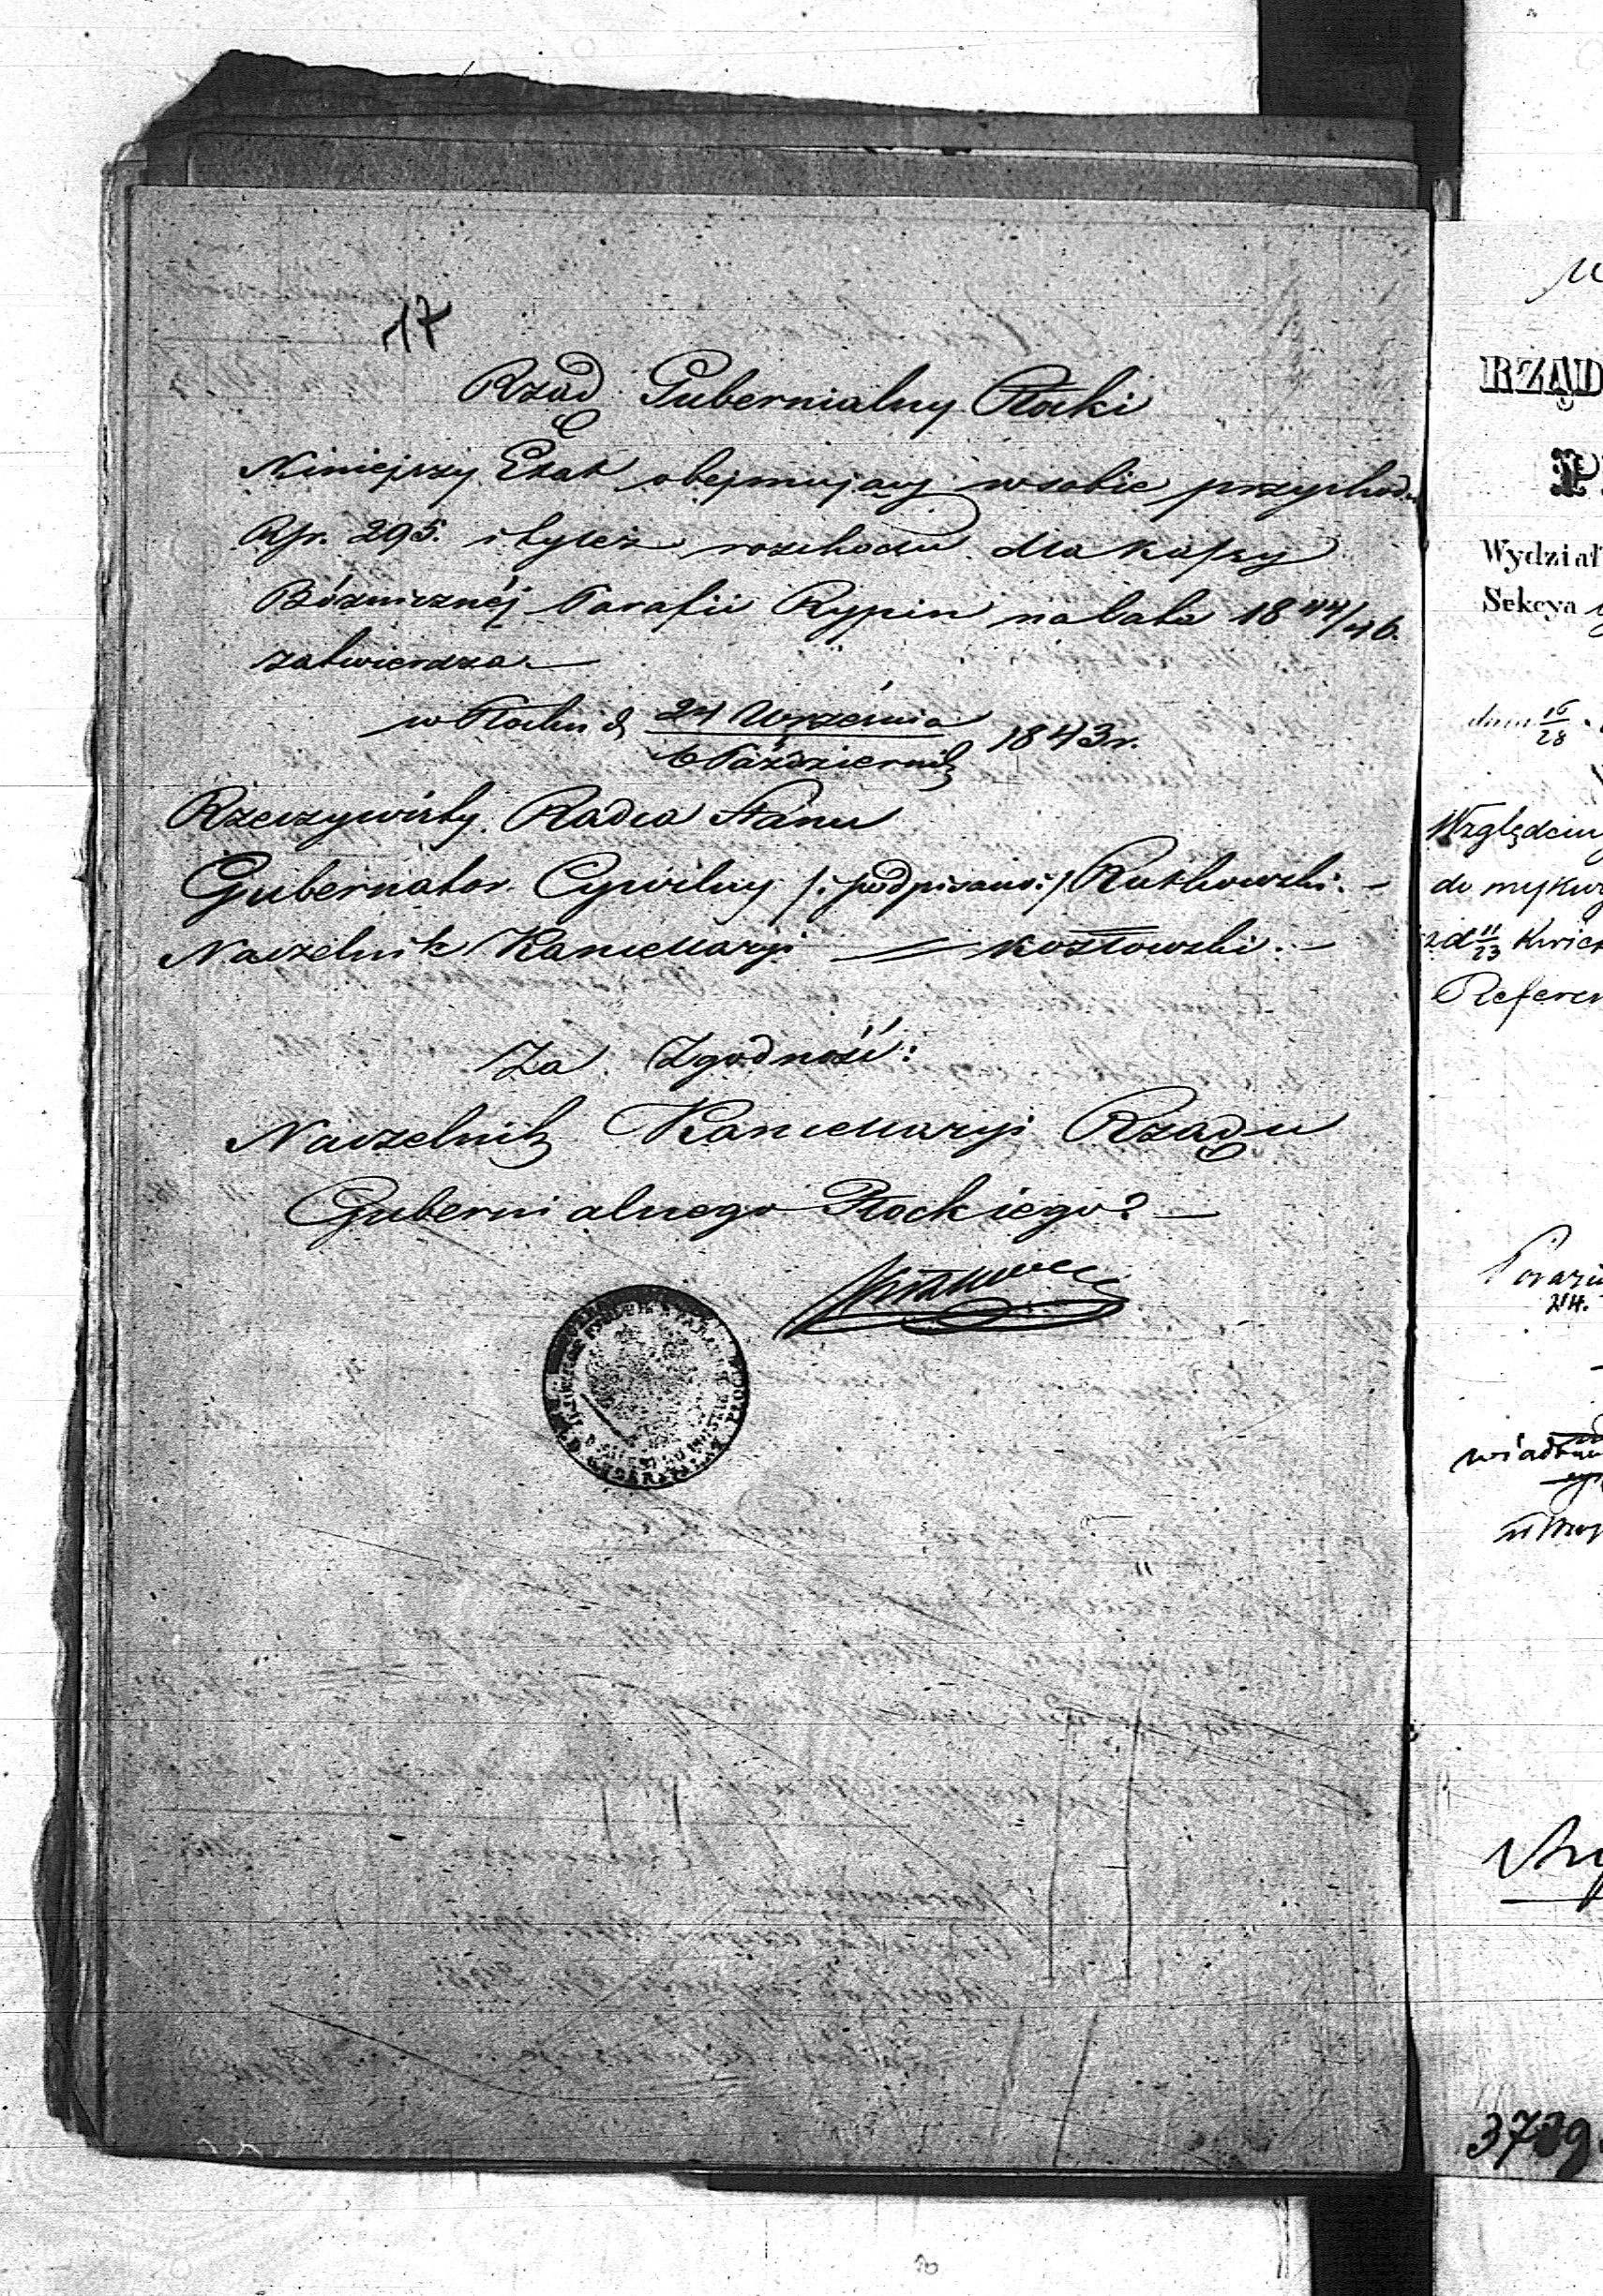 17
Rząd Gubernialny Płocki
Niniejszy Etat obejmujący w sobie przychodu
Rsr. 295. i tyleż rozchodu dla Kassy
Bóżnicznéj Parafii Rypin na lata 18 44/46.
zatwierdza
w Płocku d 24 Września 1843 r.
6 Październik
Rzeczywisty Radca Stanu
Gubernator Cywilny /: podpisano :/ Rutkowski. –
Naczelnik Kancellaryi = Kozłowski. –
Za Zgodność:
Naczelnik Kancellaryi Rządu
Gubernialnego Płockiego
RZĄD
P
Wydział
Sekcya
dnia 16/28
Względem
do
z d 11/23
3739